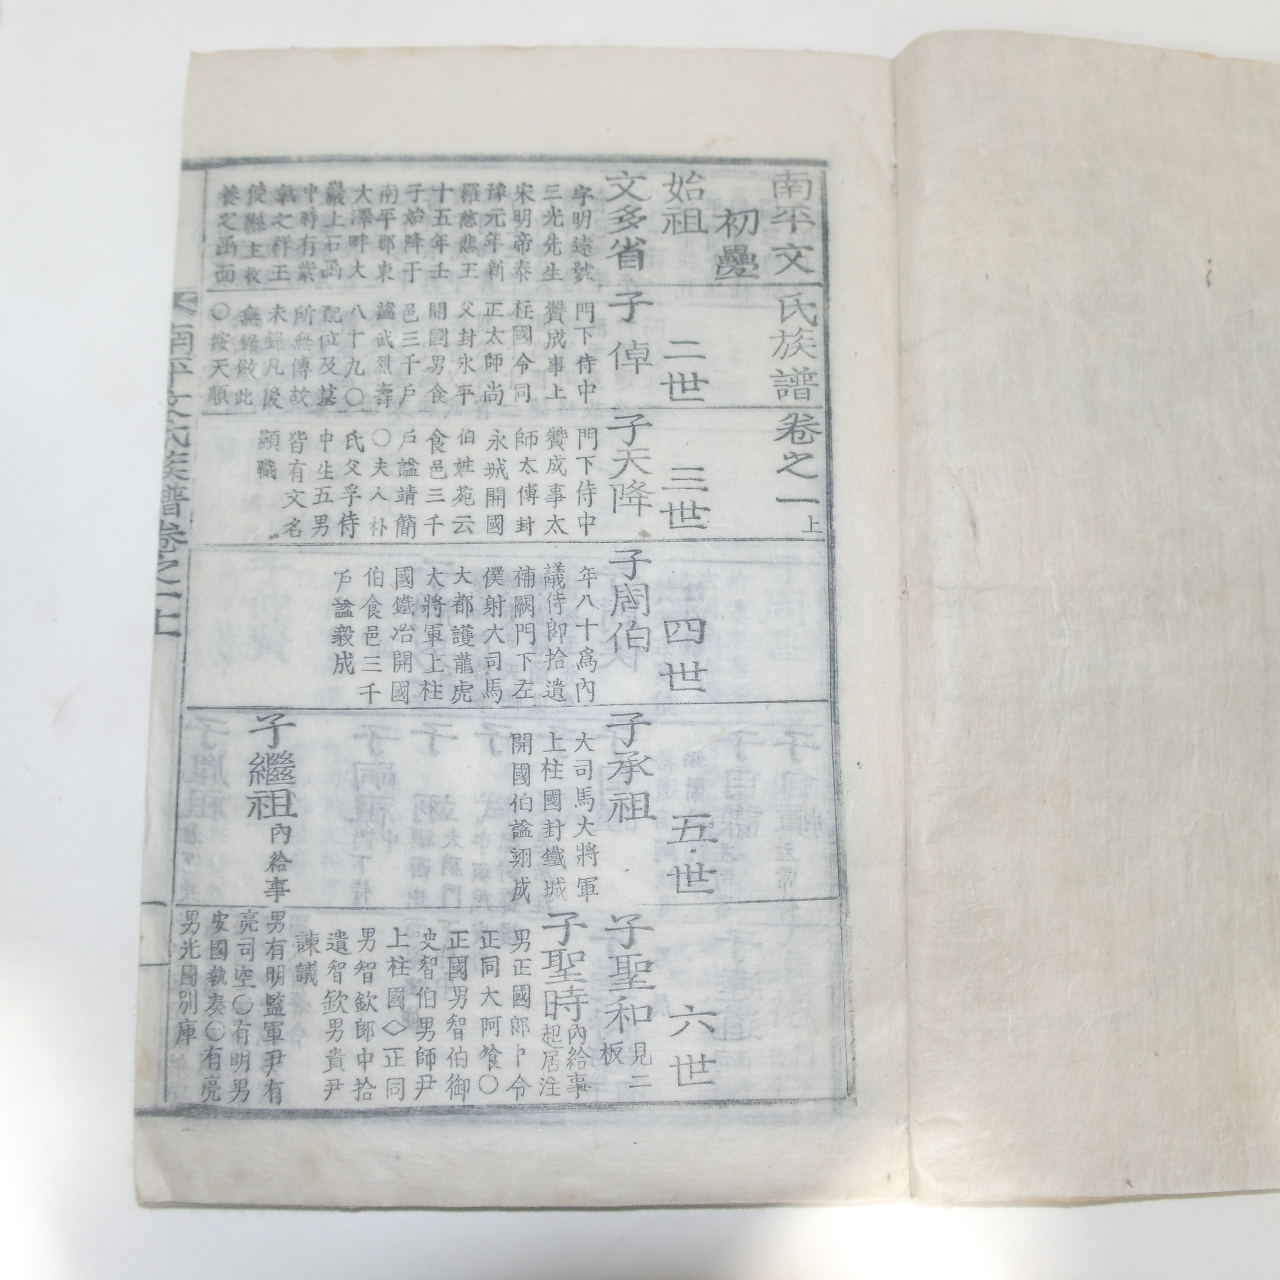 南平文氏族譜卷之一上
初疊
始祖
文多省
字明遠號
三光先生
宋明帝泰
豫元年新
羅慈悲王
十五年壬
子始降于
南平郡東
大澤畔大
巖上石函
中時有紫
氣之祥王
使縣主收
養之函面
二世
子倬
門下侍中
贊成事上
柱國令同
正太師尚
父封永平
開國男食
邑三千戶
謚武烈壽
八十九〇
配位及墓
所無傳故
未錄凡後
無錄倣此
〇按天順
三世
子天降
門下侍中
贊成事太
師太傅封
永城開國
伯姓苑云
食邑三千
戶謚靖簡
〇夫人朴
氏父孚侍
中生五男
皆有文名
顯職
四世
子周伯
年八十爲內
議侍郎拾遺
補闕門下左
僕射大司馬
大都護龍虎
大將軍上柱
國鐵冶開國
伯食邑三千
戶謚毅成
五世
子承祖
大司馬大將軍
上柱國封鐵城
開國伯謚翊成
子繼祖內給事
六世
子聖和見二板
子聖時內給事起居注
男正國郎卜令
正同大阿飡〇
正國男智伯御
史智伯男師尹
上柱國◇正同
男智欽郎中拾
遺智欽男貴尹
諫議
男有明監軍尹有
亮司空〇有明男
安國執奏〇有亮
男光國別庫
南平文氏族譜卷之一上
一